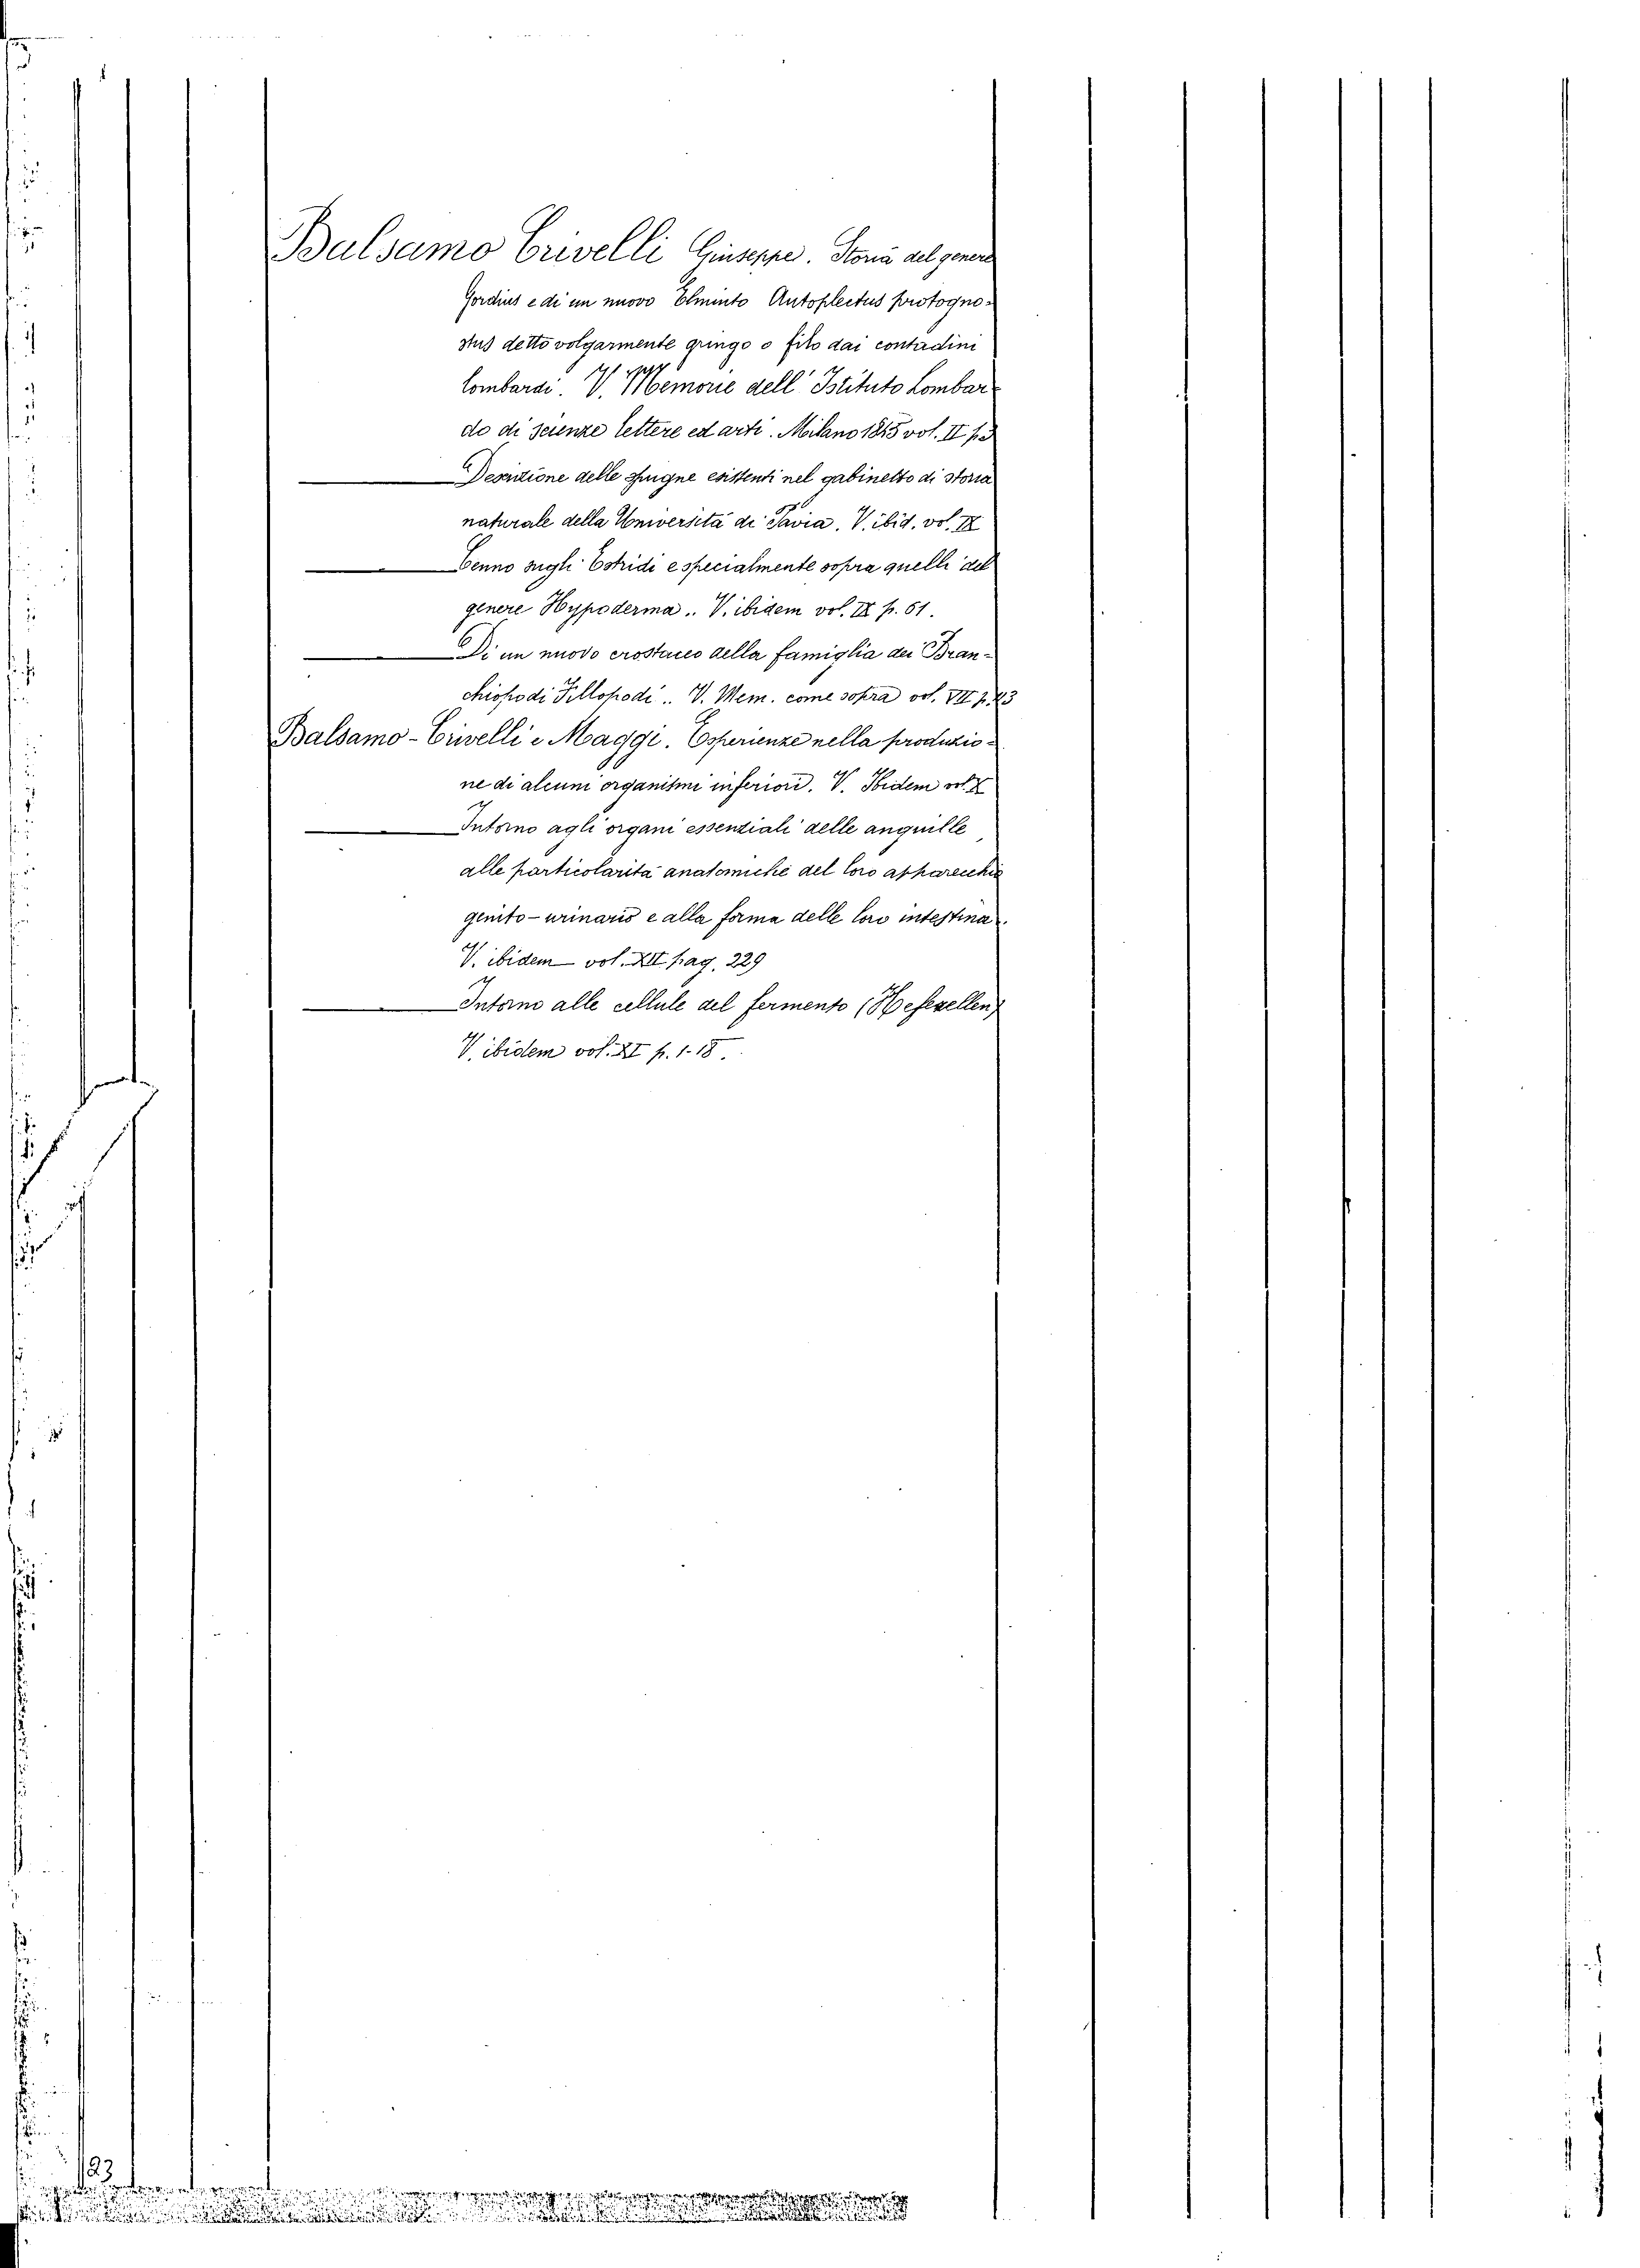 Balsamo Crivelli Giuseppe. Storia del genere
Gordius e di un nuovo Elminto Autoplectus protogno-
stus detto volgarmente gringo o filo dai contadini
lombardi. V. Memorie dell' Istituto Lombar-
do di scienze lettere ed arti. Milano 1845 vol. II p.
Descrizione delle spugne esistenti nel gabinetto di storia
naturale della Università di Pavia. V. ibid. vol. IX
Cenno sugli Estridi e specialmente sopra quelli del
genere Hypoderma.. V. ibidem vol. IX p. 61.
Di un nuovo crostaceo della famiglia dei Bran-
chiopodi Fillopodi.. V. Mem. come sopra vol. VII p. 43
Balsamo-Crivelli e Maggi. Esperienze nella produzio-
ne di alcuni organismi inferiori. V. Ibidem vol. X
Intorno agli organi essenziali delle anguille,
alle particolarità anatomiche del loro apparecchio
genito-urinario e alla forma delle loro intestina.
V. ibidem vol. XII pag. 229
Intorno alle cellule del fermento (Hefezellen)
V. ibidem vol. XI p. 1-18.
123